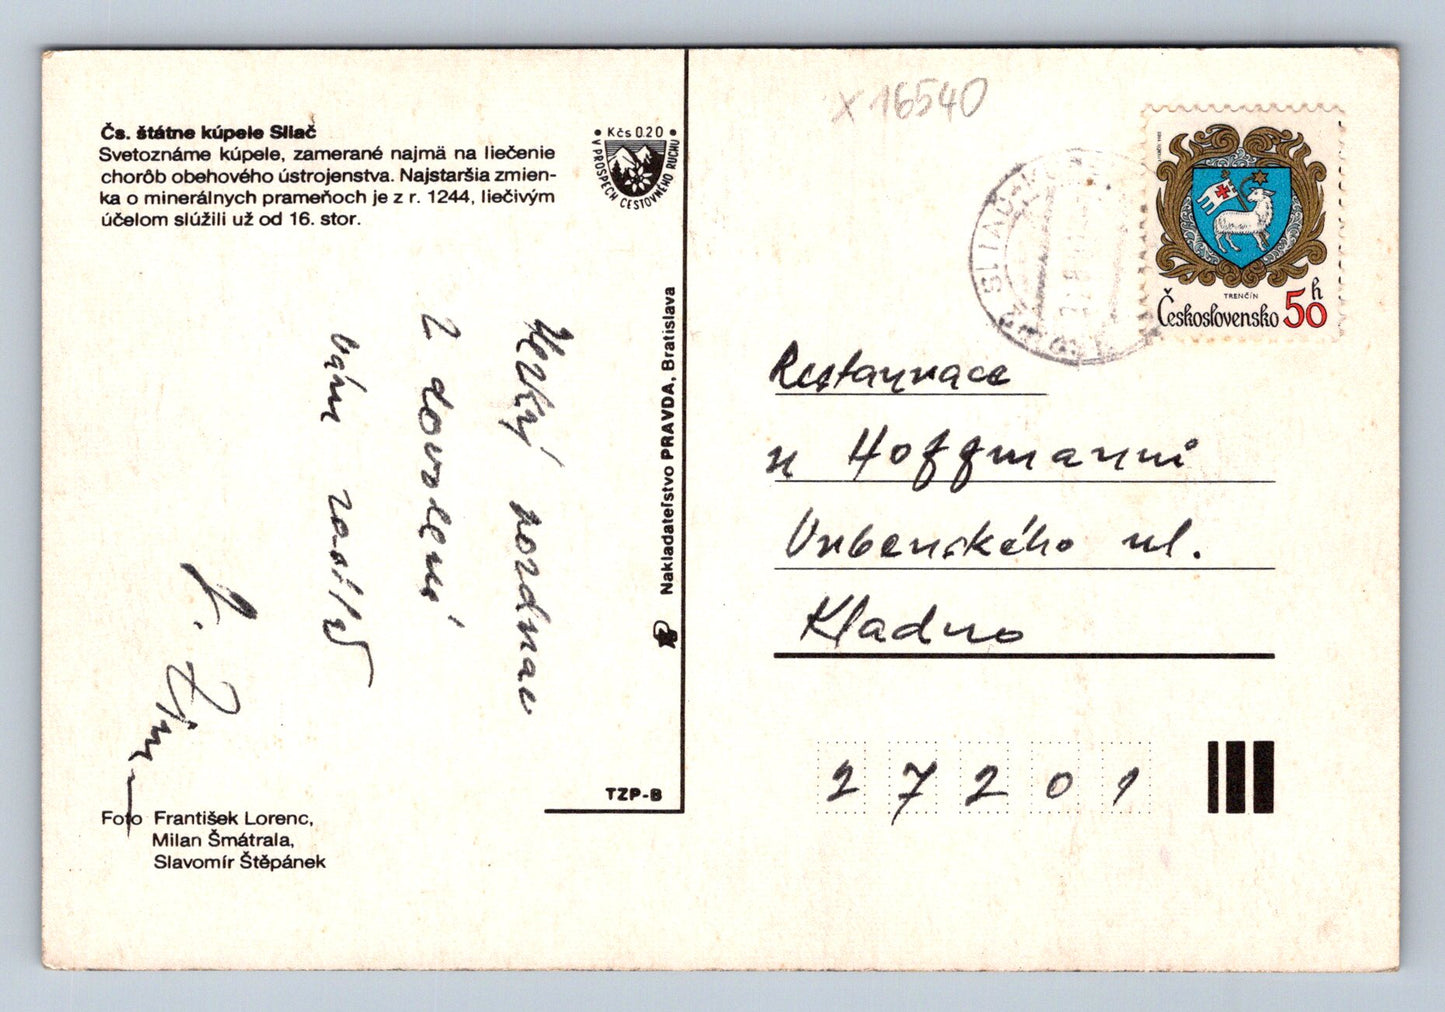 Čs. štátne kúpele Sliač
Svetoznáme kúpele, zamerané najmä na liečenie
chorôb obehového ústrojenstva. Najstaršia zmien-
ka o minerálnych prameňoch je z r. 1244, liečivým
účelom slúžili už od 16. stor.
• Kčs 0.20 •
V PROSPECH CESTOVNÉHO RUCHU
Hezký pozdrav
z dovolené
Vám zasílá
Nakladateľstvo PRAVDA, Bratislava
TZP-B
Foto František Lorenc,
Milan Šmátrala,
Slavomír Štěpánek
X 16540
SLIAČ
TRENČÍN
Československo 50 h
Restaurace
u Hoffmannů
Vrbenského ul.
Kladno
27201